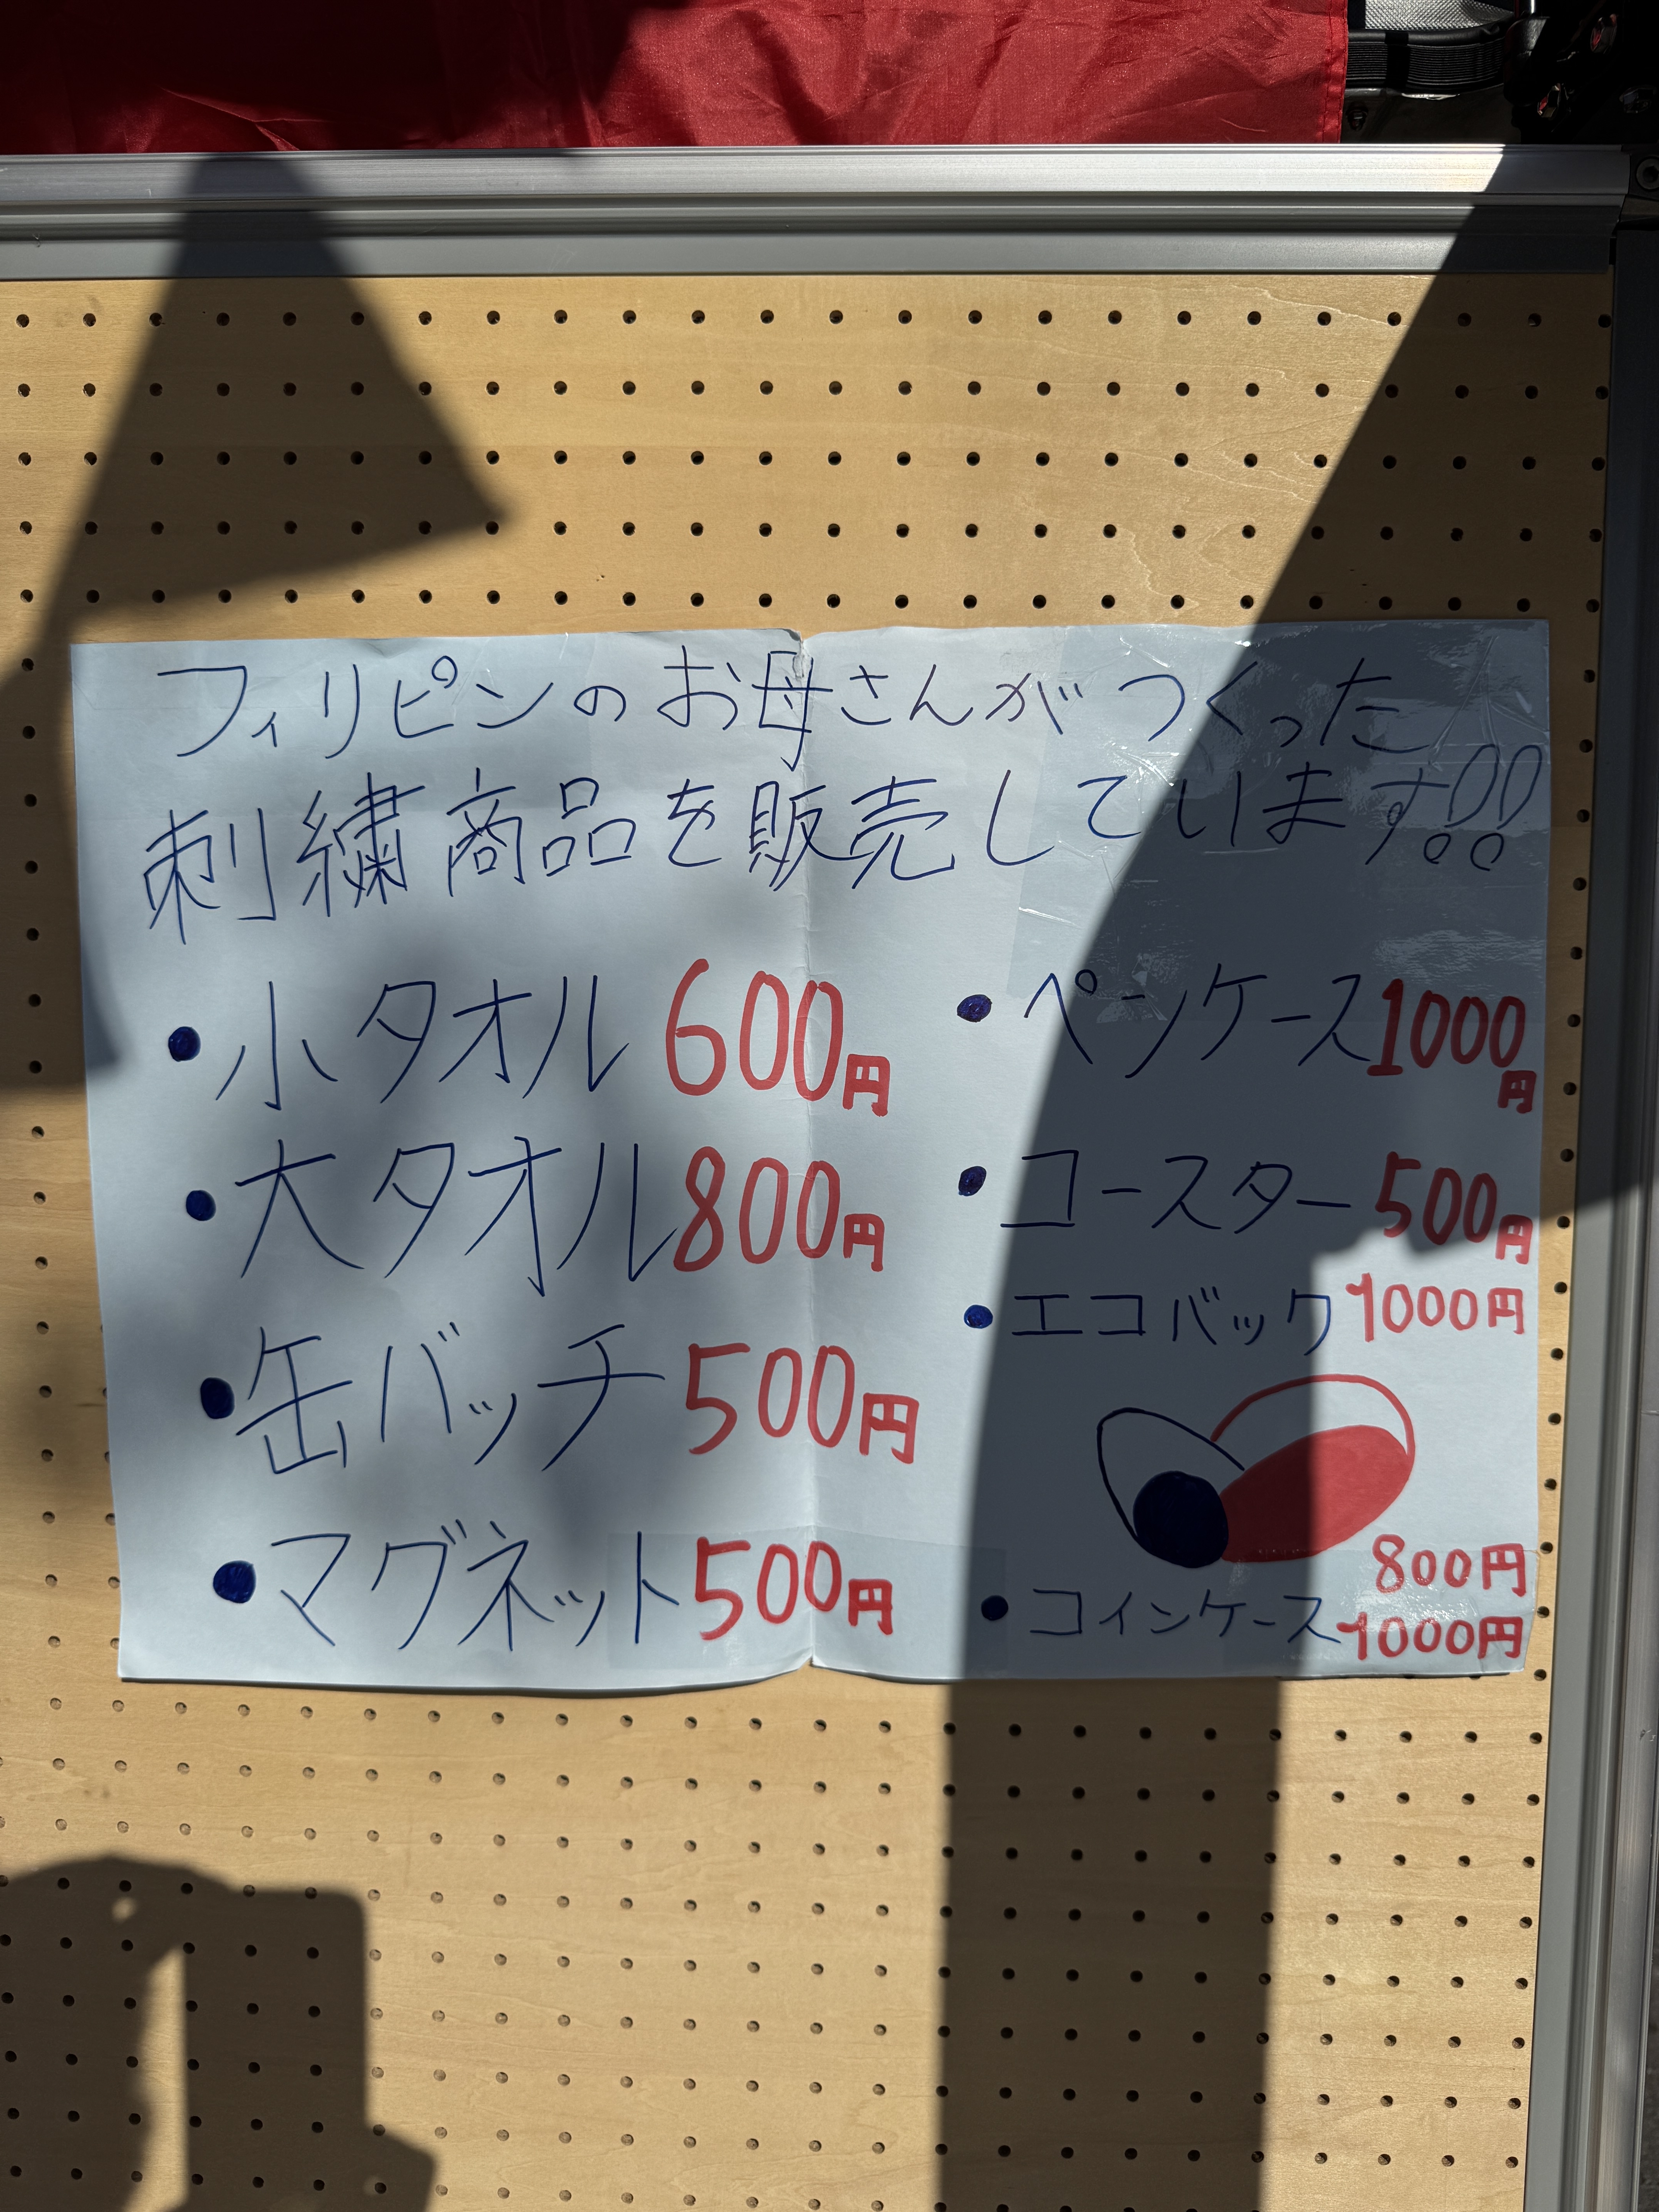 フィリピンのお母さんがつくった
刺繍商品を販売しています!!
・小タオル 600円
・大タオル 800円
・缶バッチ 500円
・マグネット 500円
・ペンケース 1000円
・コースター 500円
・エコバック 1000円
・コインケース 800円
1000円